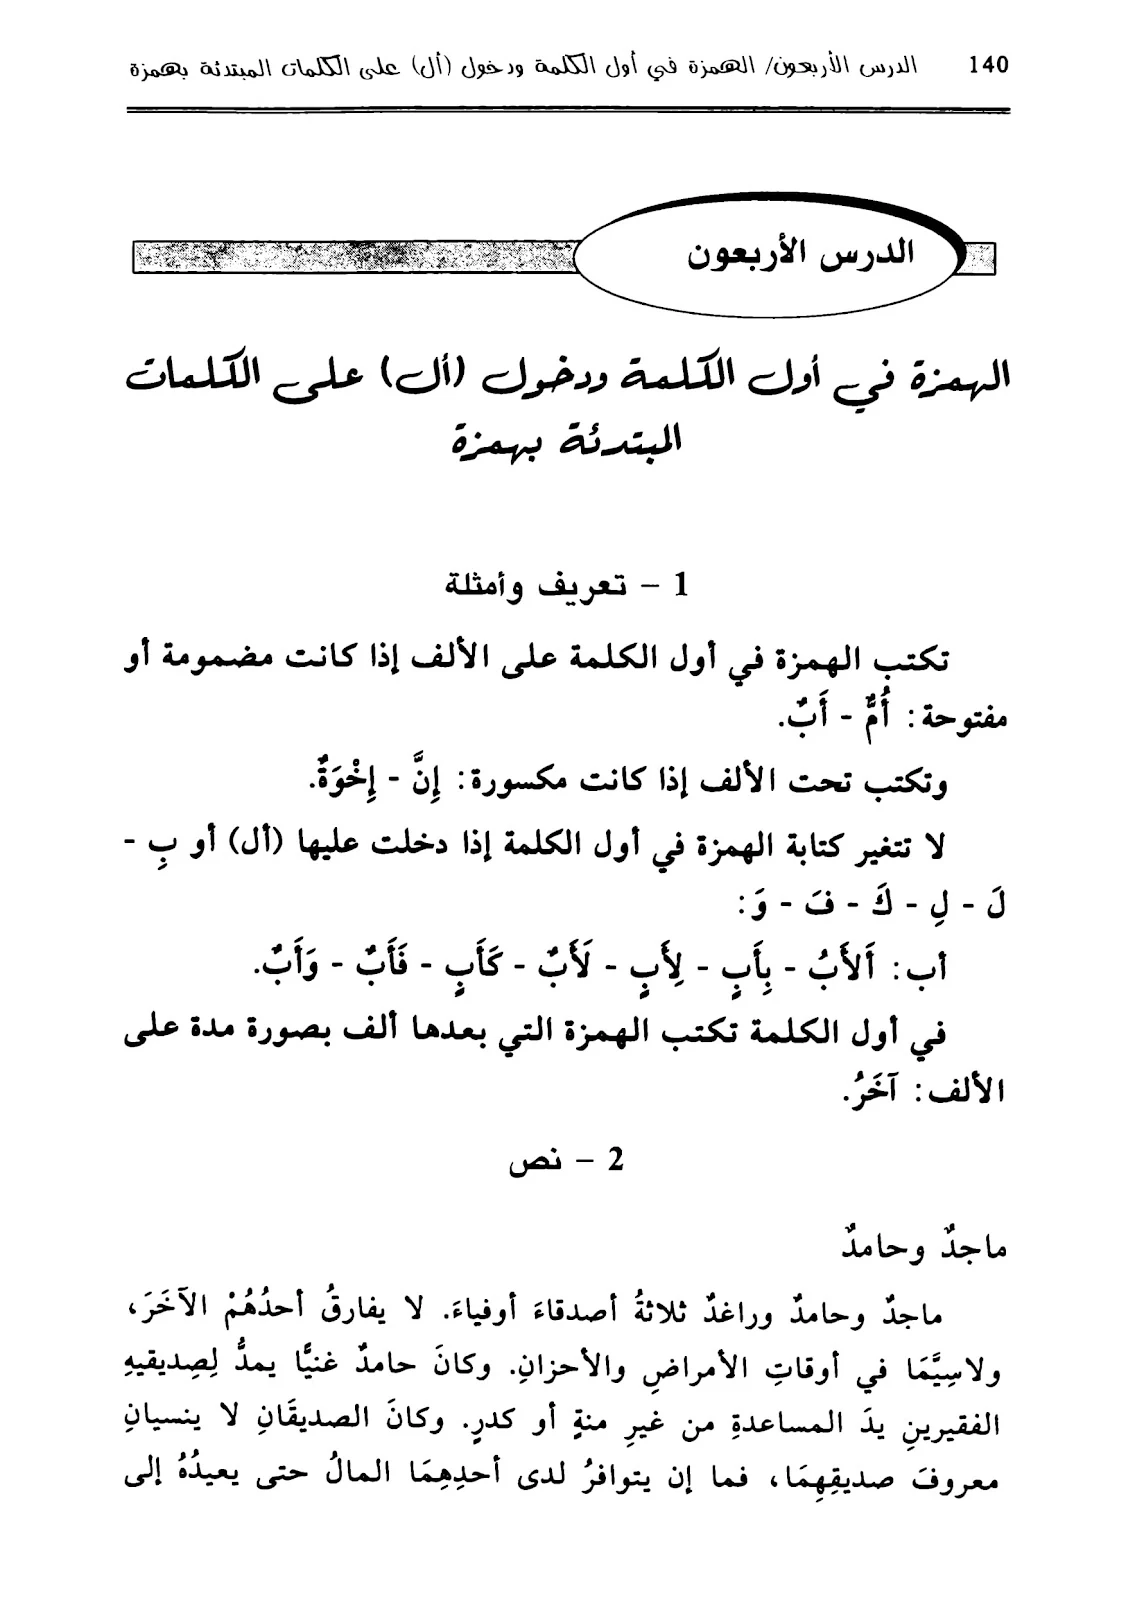 140 الدرس الأربعون/ الهمزة في أول الكلمة ودخول (أل) على الكلمات المبتدئة بهمزة
الدرس الأربعون
الهمزة في أول الكلمة ودخول (أل) على الكلمات
المبتدئة بهمزة
1 - تعريف وأمثلة
تكتب الهمزة في أول الكلمة على الألف إذا كانت مضمومة أو
مفتوحة: أُمٌّ - أَبٌ.
وتكتب تحت الألف إذا كانت مكسورة: إِنَّ - إِخْوَةٌ.
لا تتغير كتابة الهمزة في أول الكلمة إذا دخلت عليها (أل) أو بِ -
لَ - لِ - كَ - فَ - وَ:
أب: أَلأَبُ - بِأَبٍ - لِأَبٍ - لَأَبٌ - كَأَبٍ - فَأَبٌ - وَأَبٌ.
في أول الكلمة تكتب الهمزة التي بعدها ألف بصورة مدة على
الألف: آخَرُ.
2 - نص
ماجدٌ وحامدٌ
ماجدٌ وحامدٌ وراغدٌ ثلاثةُ أصدقاءَ أوفياءَ. لا يفارقُ أحدُهُمْ الآخَرَ،
ولاسِيَّمَا في أوقاتِ الأمراضِ والأحزانِ. وكانَ حامدٌ غنيًّا يمدُّ لِصِديقيهِ
الفقيرينِ يدَ المساعدةِ من غيرِ منةٍ أو كدرٍ. وكانَ الصديقَانِ لا ينسيانِ
معروفَ صديقِهِمَا، فما إن يتوافرُ لدى أحدِهِمَا المالُ حتى يعيدُهُ إلى